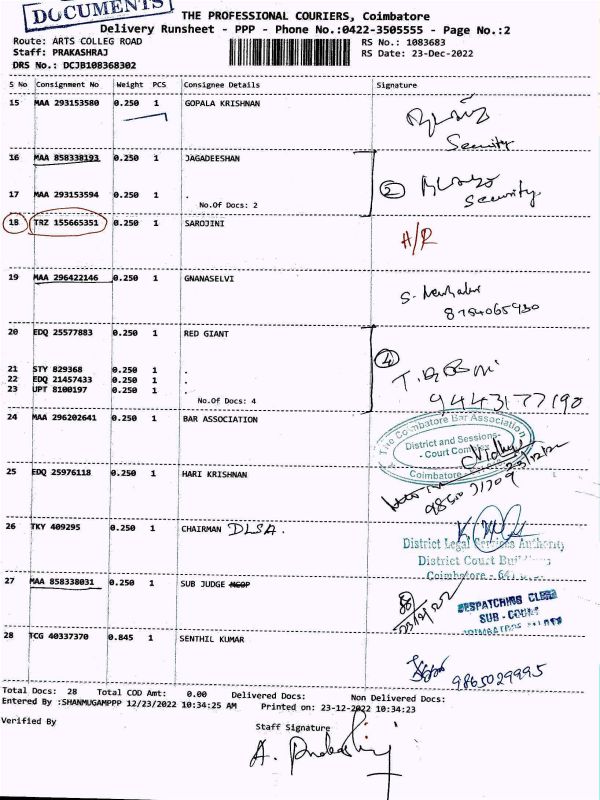 DOCUMENTS
THE PROFESSIONAL COURIERS, Coimbatore
Delivery Runsheet - PPP - Phone No.:0422-3505555 - Page No.:2
Route: ARTS COLLEG ROAD RS No.: 1083683
Staff: PRAKASHRAJ RS Date: 23-Dec-2022
DRS No.: DCJB108368302
S No Consignment No Weight PCS Consignee Details Signature
15 MAA 293153580 0.250 1 GOPALA KRISHNAN
Security
16 MAA 858338193 0.250 1 JAGADEESHAN
17 MAA 293153594 0.250 1 . 2
No.Of Docs: 2 Security
18 TRZ 155665351 0.250 1 SAROJINI H/R
19 MAA 296422146 0.250 1 GNANASELVI
8754065930
20 EDQ 25577883 0.250 1 RED GIANT 4
21 STY 829368 0.250 1 .
22 EDQ 21457433 0.250 1 .
23 UPT 8100197 0.250 1 .
No.Of Docs: 4 9443177190
24 MAA 296202641 0.250 1 BAR ASSOCIATION
The Coimbatore Bar Association
District and Sessions
- Court Complex
Coimbatore
25 EDQ 25976118 0.250 1 HARI KRISHNAN
26 TKY 409295 0.250 1 CHAIRMAN DLSA.
District Legal Services Authority
District Court Buildings
Coimbatore - 641
27 MAA 858338031 0.250 1 SUB JUDGE
23/12/22
DESPATCHING CLERK
SUB - COURT
COIMBATORE
28 TCG 40337370 0.845 1 SENTHIL KUMAR
9865029995
Total Docs: 28 Total COD Amt: 0.00 Delivered Docs: Non Delivered Docs:
Entered By :SHANMUGAMPPP 12/23/2022 10:34:25 AM Printed on: 23-12-2022 10:34:23
Verified By Staff Signature